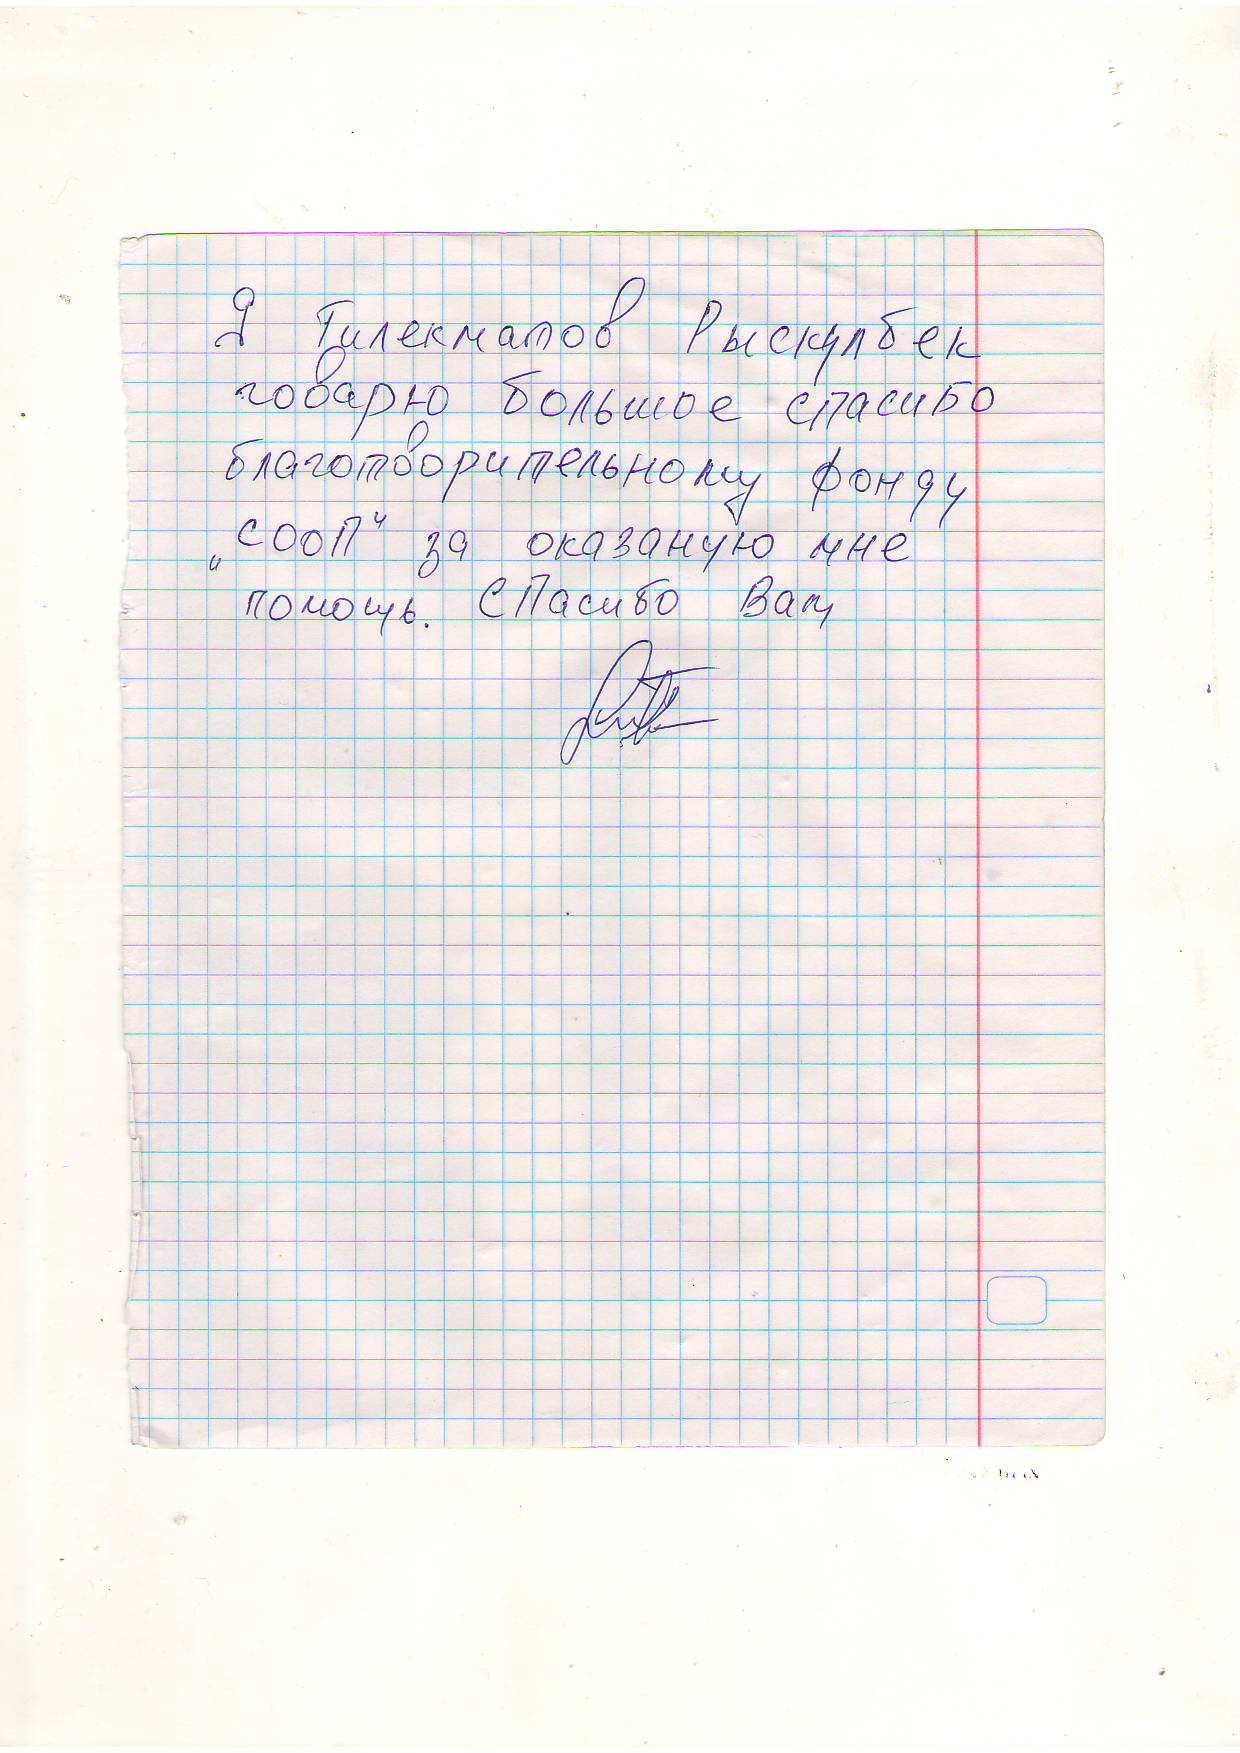 Я Тилекматов Рыскулбек
говарю большое спасибо
благотворительному фонду
„СООП“ за оказаную мне
помощь. Спасибо Вам